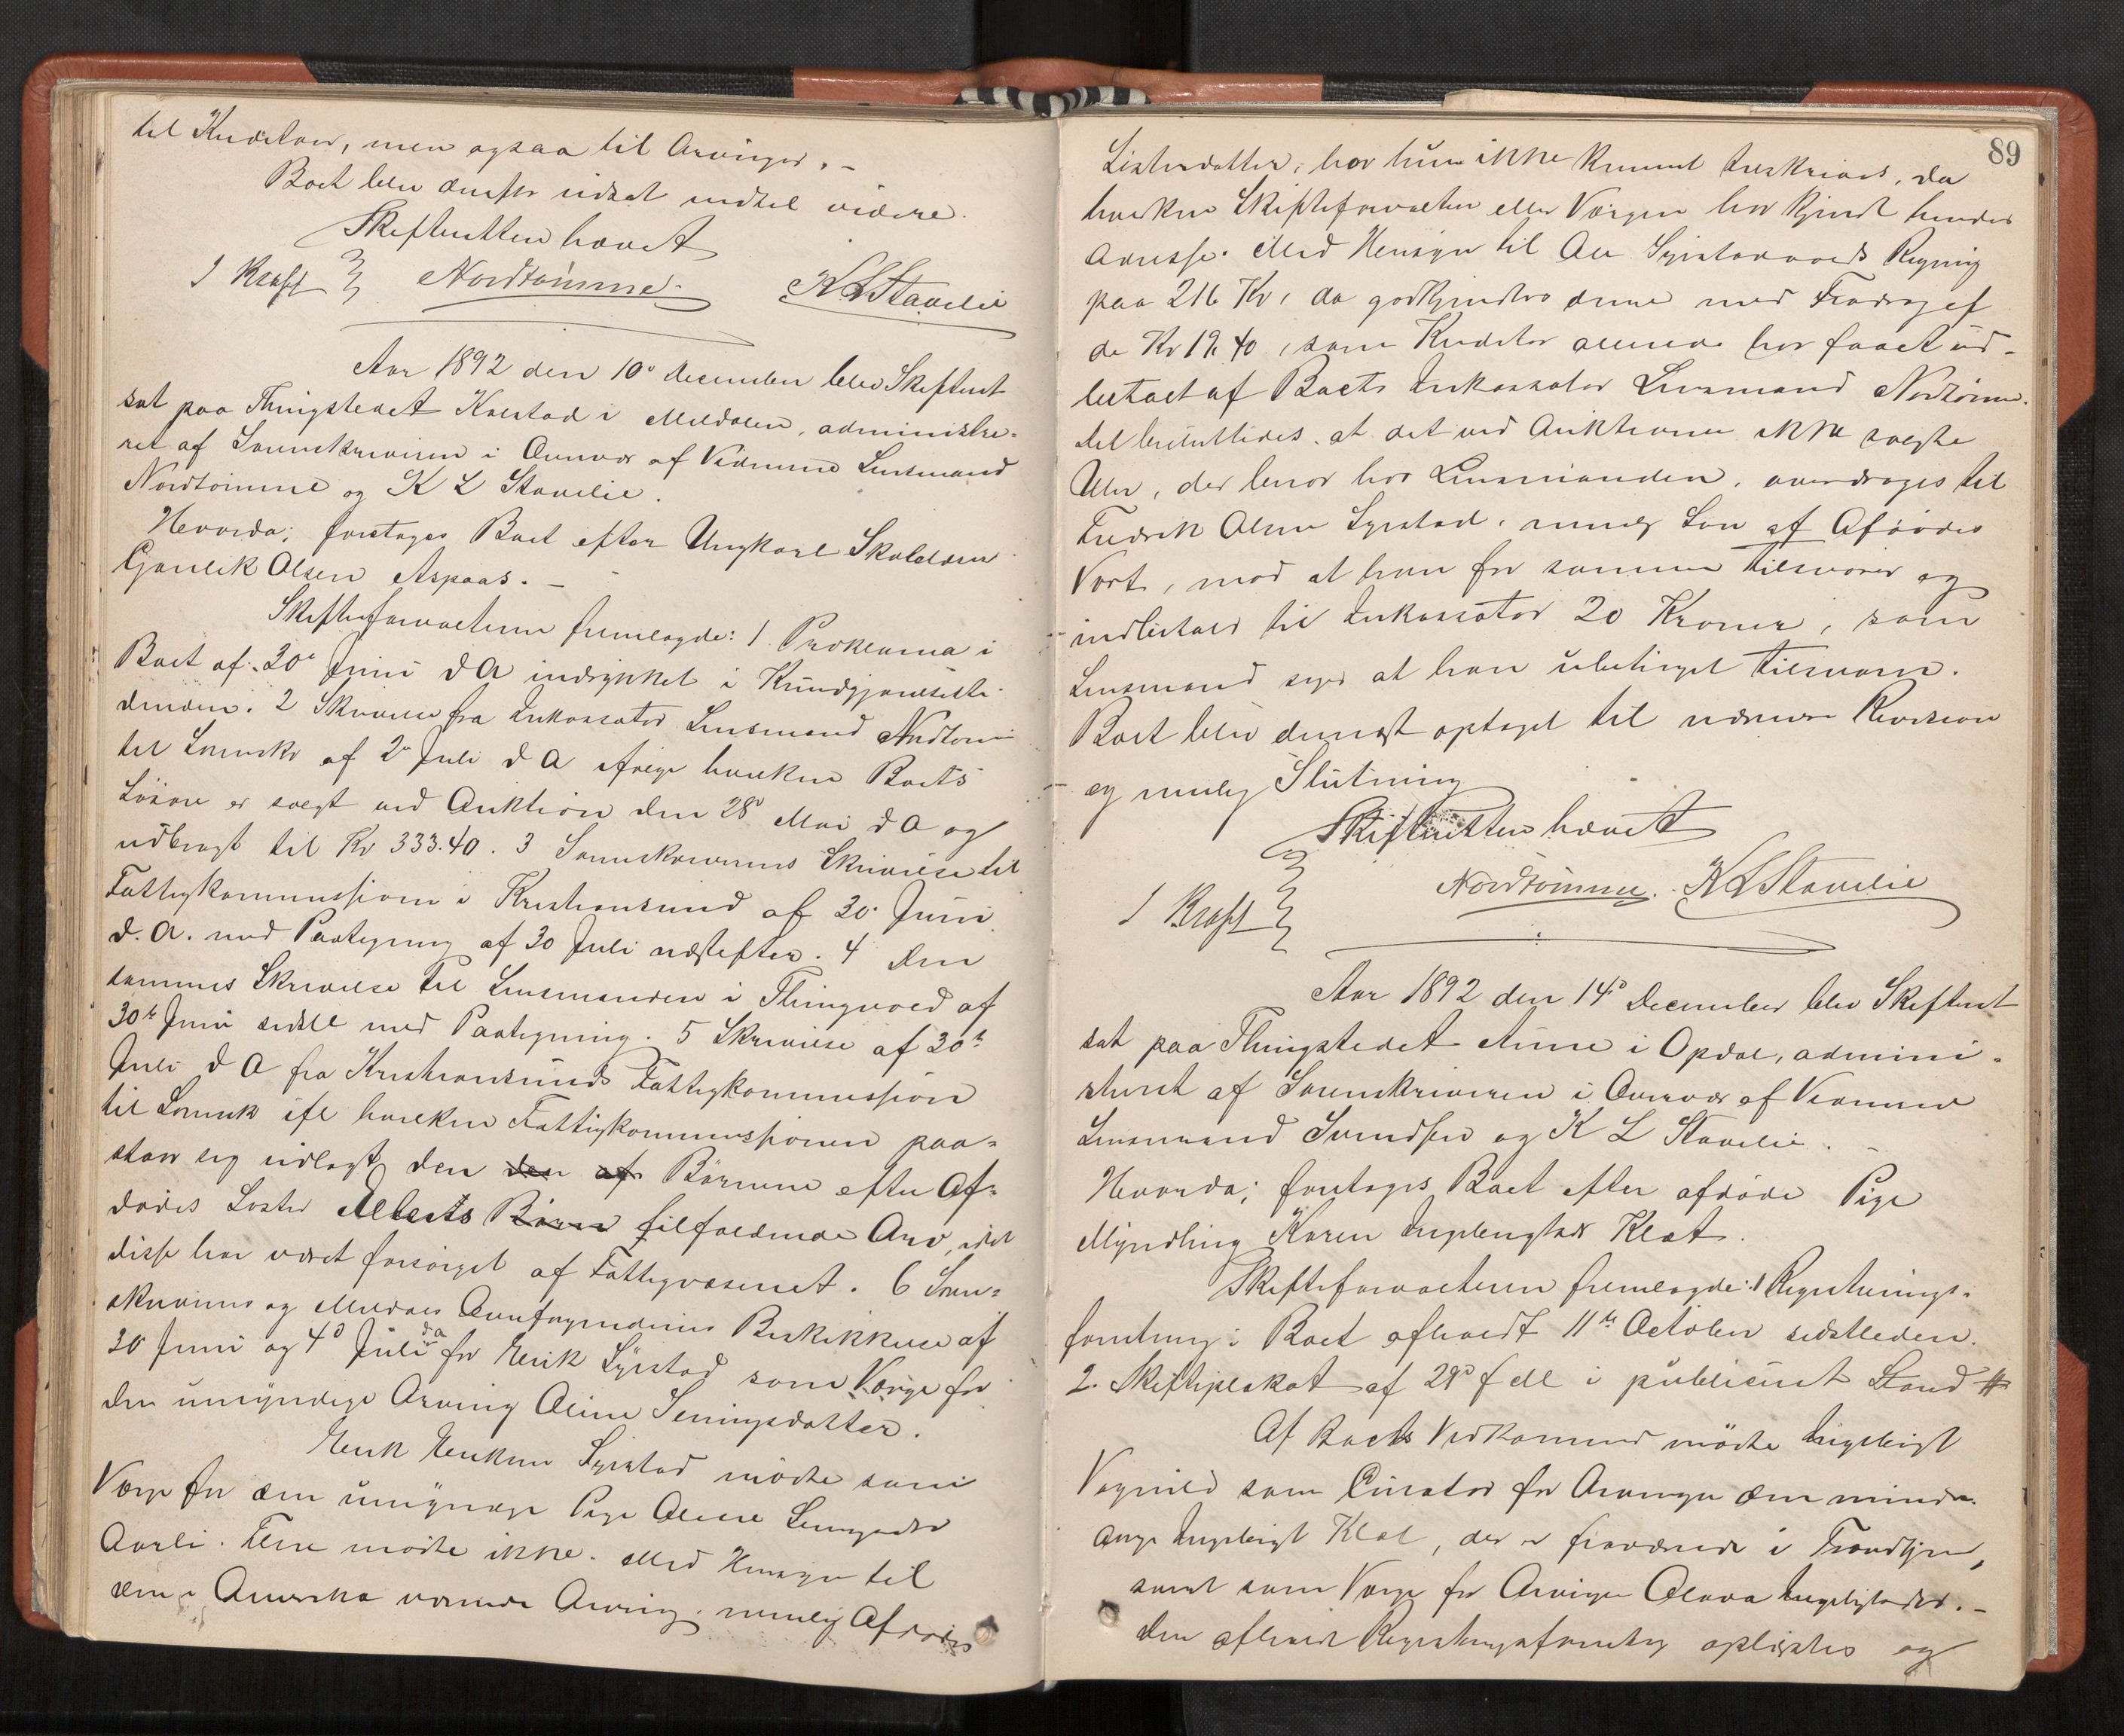 til Kreditorer, men ogsaa til Arvinger. –
Boet blev derefter udsat indtil videre.
Skifteretten hævet
J Kraft Nordtømme. K L Stavelie
Aar 1892 den 10de December blev Skifteret
sat paa Thingstedet Kalstad i Meldalen, administre-
ret af Sorenskriveren i Overvær af Vidnerne Lensmand
Nordtømme og K L Stavelie.
Hvorda: foretages Boet efter Ungkarl Skolelærer
Gjønlek Olsen Aspaas. –
Skifteforvalteren fremlagde: 1 Proklama i
Boet af 30te Juni d A indrykket i Kundgjørelsesti-
denden. 2 Skrivelse fra Inkassator Lensmand Nordtømme
til Sorenskr af 2den Juli d A ifølge hvilken Boets
Løsøre er solgt ved Auktion den 28de Mai d A og
udbragt til Kr 333.40. 3 Sorenskriverens Skrivelse til
Fattigkommissionen i Kristiansund af 30. Juni
d. A. med Paategning af 30 Juli næstefter. 4 Den
sammes Skrivelse til Lensmanden i Thingvold af
30te Juni sidstl med Paategning. 5 Skrivelse af 30te
Juli d A fra Kristiansunds Fattigkommission
til Sorensk ifl hvilken Fattigkommissionen paa-
staar sig udlagt den den af Børnene efter Af-
dødes Søster Alberts Børn tilfaldende Arv, idet
disse har været forsørget af Fattigvæsenet. 6 Soren-
skriverens og Meldals Overformynderies Beskikkelse af
30 Juni og 4de Juli d A for Henrik Syrstad som Værge for
den umyndige Arving Oline Semingsdatter.
Henrik Henriksen Syrstad mødte som
Værge for den umyndige Pige Oline Semingsdtr
Aarli. Flere mødte ikke. Med Hensyn til
den i Amerika værende Arving, nemlig Afdødes
89
Søsterdatter, har hun ikke kunnet tilskrives, da
hverken Skifteforvalteren eller Værgen har kjendt hendes
Adresse. Med Hensyn til Ole Syrstadvolds Regning
paa 216 Kr, da godkjendtes denne med Fradrag af
de Kr 19.40, som Kreditor allerede har faaet ud-
betalt af Boets Inkassator Lensmand Nordtømme.
Det besluttedes, at det ved Auktionen ikke solgte
Uhr, der beror hos Lensmanden, overdrages til
Fredrik Olsen Syrstad, nemlig Søn af Afdødes
Vært, mod at han for samme tilsvarer og
indbetaler til Inkassator 20 Kroner, som
Lensmand siger at han ubetinget tilsvarer.
Boet blev dernæst optaget til nærmere Revision
og mulig Slutning
Skifteretten hævet
J Kraft Nordtømme. K L Stavelie
Aar 1892 den 14de December blev Skifteret
sat paa Thingstedet Aune i Opdal, admini-
streret af Sorenskriveren i Overvær af Vidnerne
Lensmand Svendsen og K L Stavelie. –
Hvorda: foretages Boet efter afdøde Pige
Myndling Karen Ingebrigtsdr Klæt.
Skifteforvalteren fremlagde: 1 Registrerings-
forretning i Boet afholdt 11te October sidstleden.
2. Skifteplakat af 29de f dl i publiceret Stand #
Af Boets Vedkommende mødte Ingebrigt
Vognild som Curator for Arvingen den mindre-
aarige Ingebrigt Klæt, der er fraværende i Trondhjem,
samt som Værge for Arvingen Olava Ingebrigtsdtr. –
Den afholdte Registreringsforretning oplæstes og